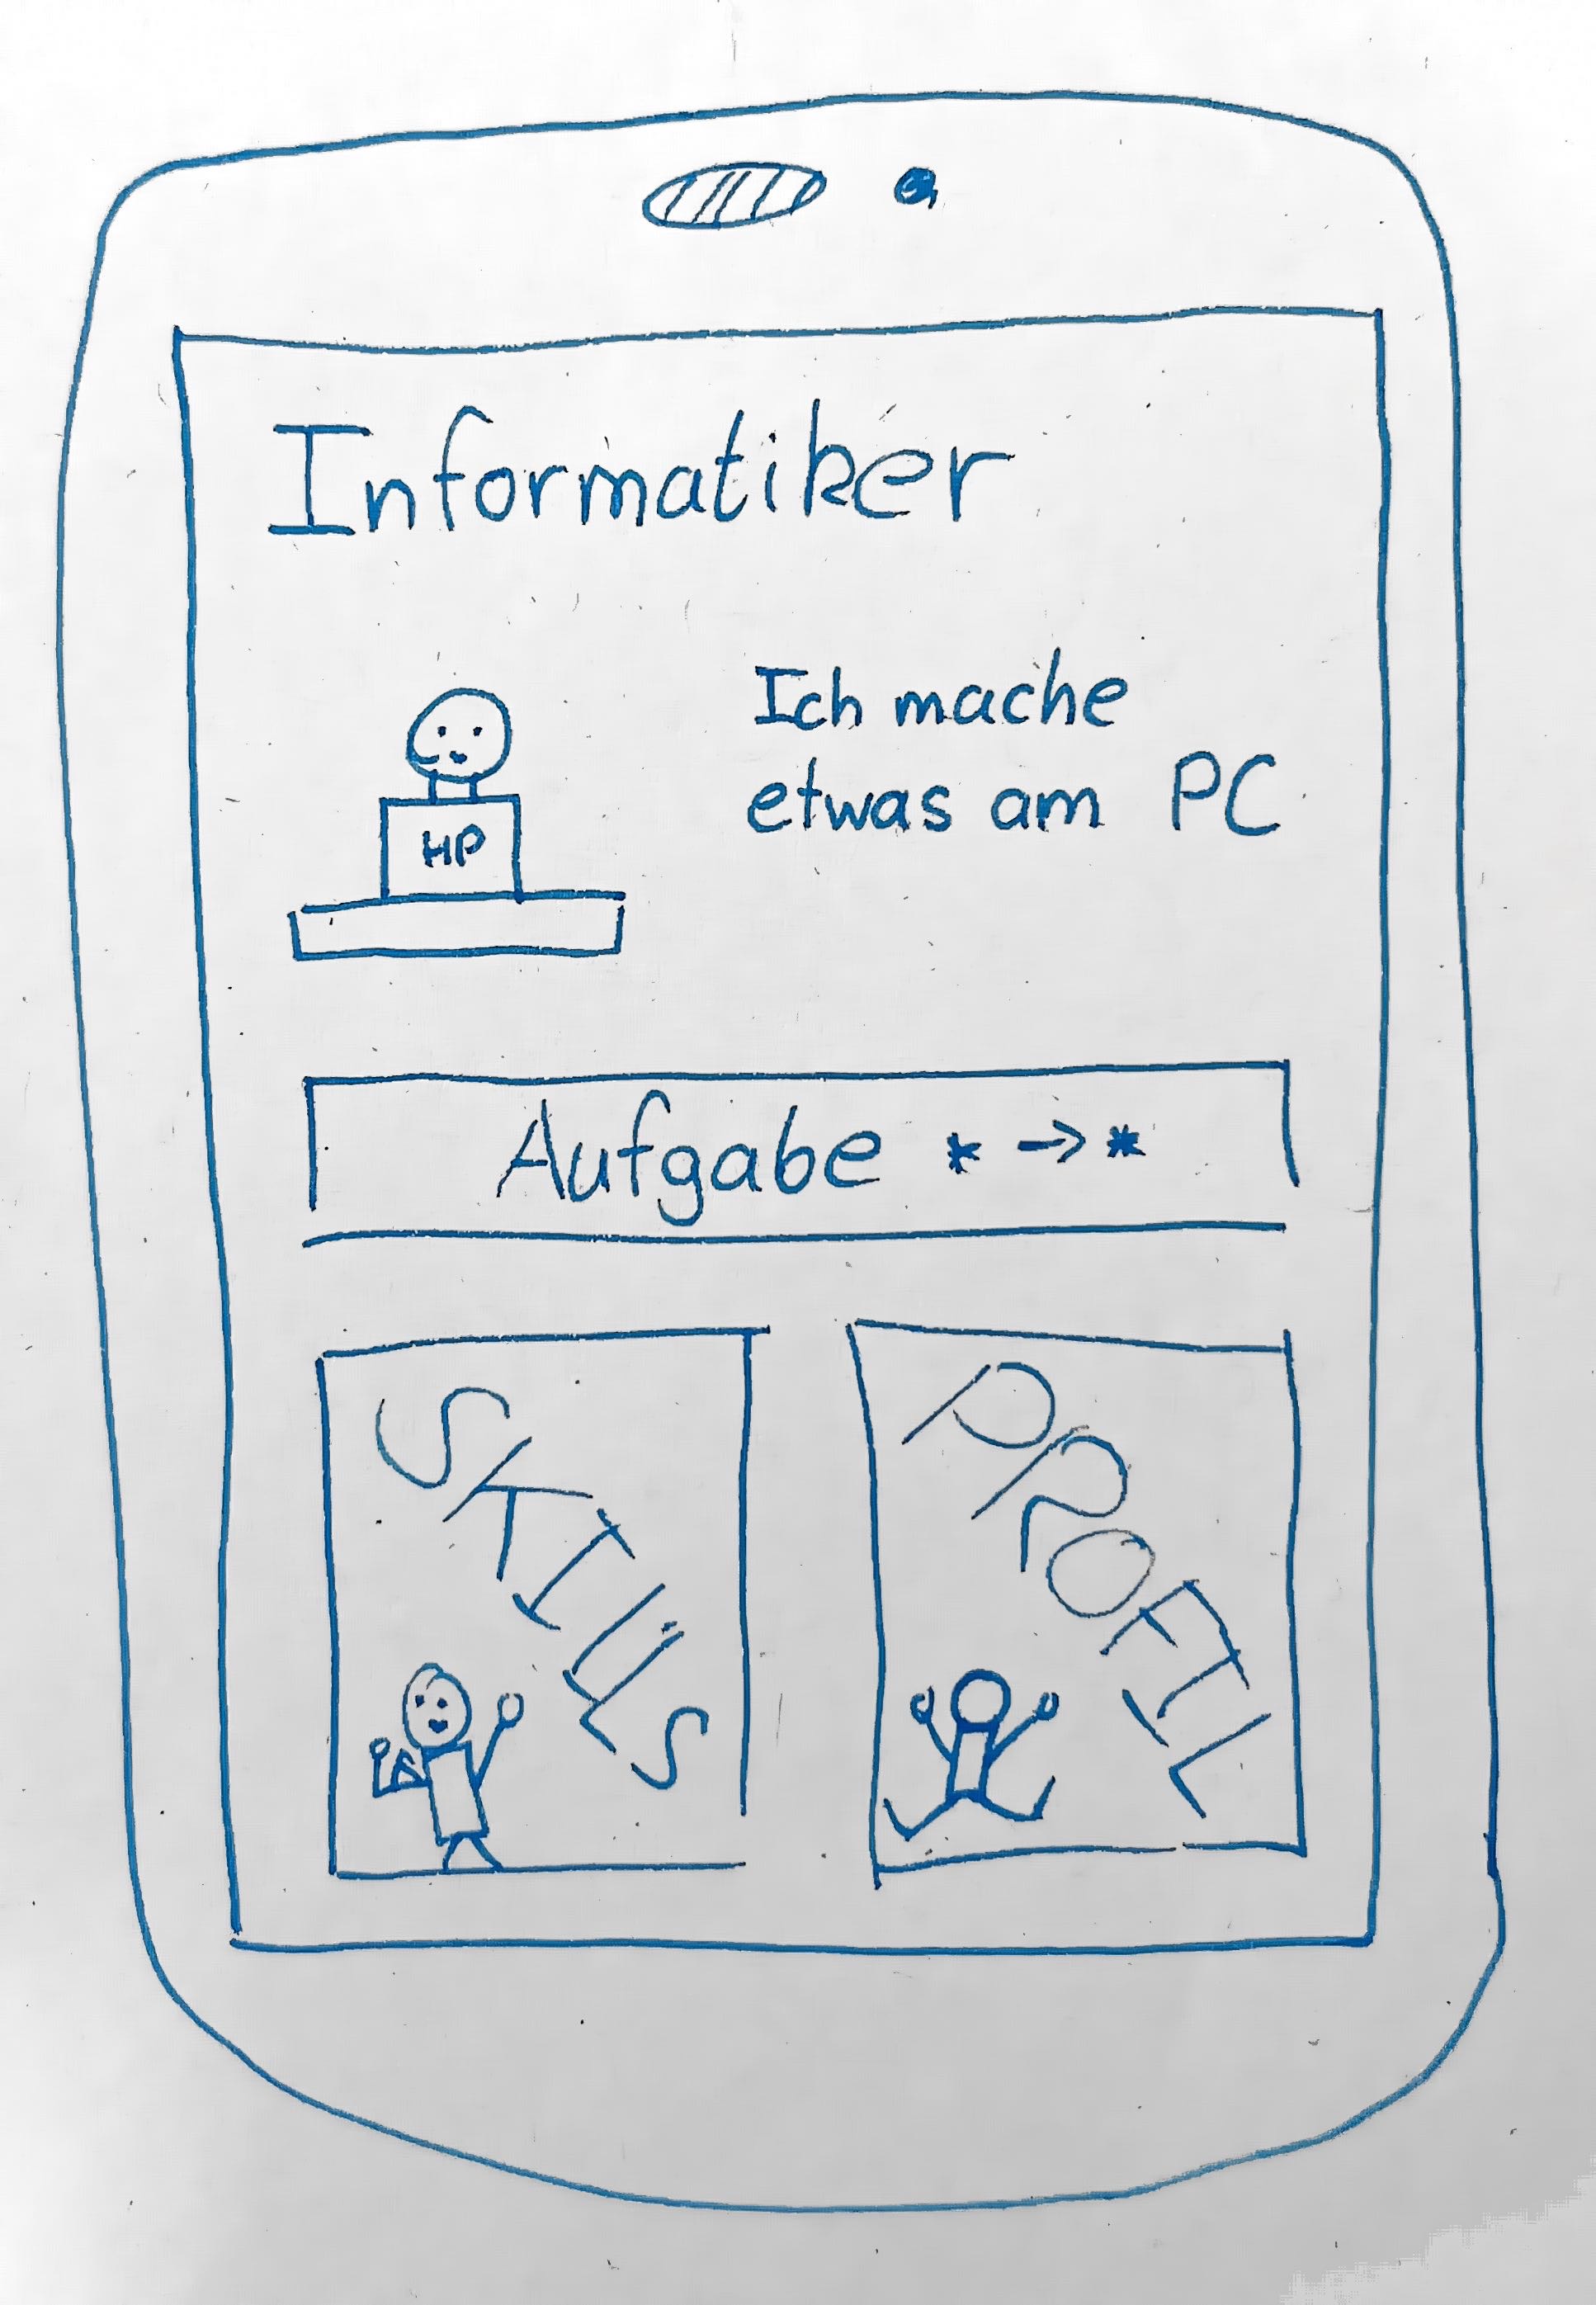 Informatiker
Ich mache
etwas am PC
HP
Aufgabe * -> *
SKILLS
PROFIL